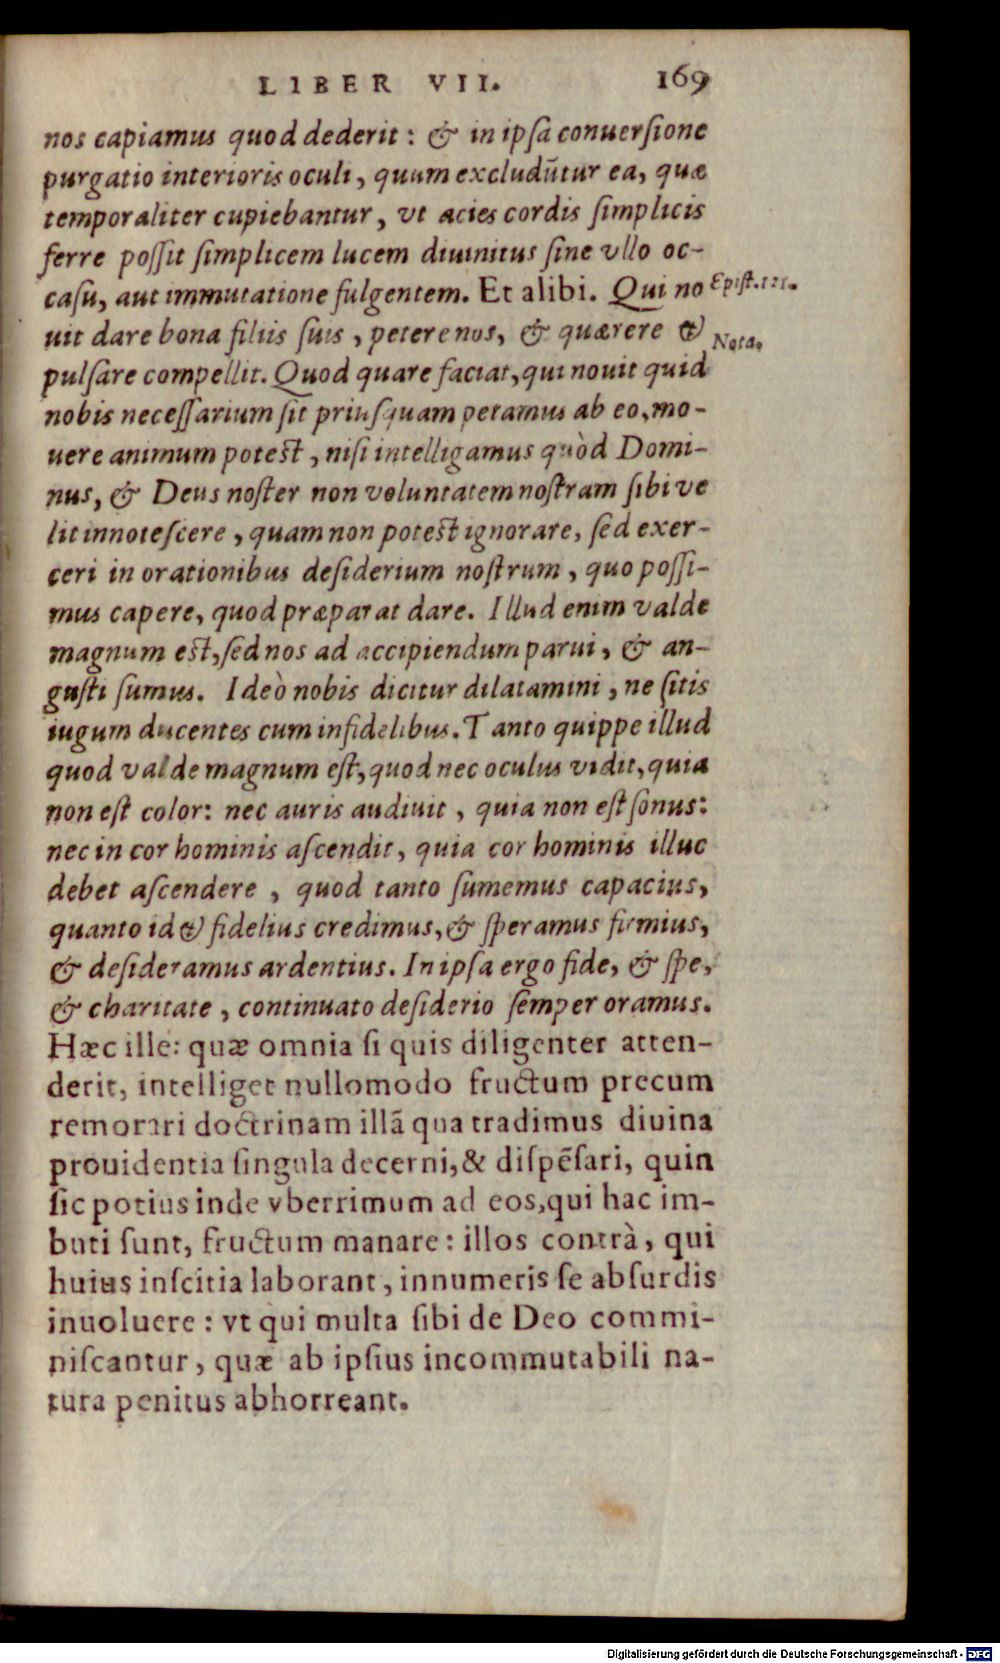 LIBER VII. 169
nos capiamus quod dederit: & in ipſa conuerſione
purgatio interioris oculi, quum excludūtur ea, quæ
temporaliter cupiebantur, vt acies cordis ſimplicis
ferre poſſit ſimplicem lucem diuinitus ſine vllo oc-
caſu, aut immutatione fulgentem. Et alibi. Qui no
Epiſt. 121.
uit dare bona filiis ſuis, petere nos, & quærere &
Nota.
pulſare compellit. Quod quare faciat, qui nouit quid
nobis neceſſarium ſit priuſquam petamus ab eo, mo-
uere animum poteſt, niſi intelligamus quòd Domi-
nus, & Deus noſter non voluntatem noſtram ſibi ve
lit innoteſcere, quam non poteſt ignorare, ſed exer-
ceri in orationibus deſiderium noſtrum, quo poſſi-
mus capere, quod præparat dare. Illud enim valde
magnum eſt, ſed nos ad accipiendum parui, & an-
guſti ſumus. Ideò nobis dicitur dilatamini, ne ſitis
iugum ducentes cum infidelibus. Tanto quippe illud
quod valde magnum eſt, quod nec oculus vidit, quia
non eſt color: nec auris audiuit, quia non eſt ſonus:
nec in cor hominis aſcendit, quia cor hominis illuc
debet aſcendere, quod tanto ſumemus capacius,
quanto id & fidelius credimus, & ſperamus firmius,
& deſideramus ardentius. In ipſa ergo fide, & ſpe,
& charitate, continuato deſiderio ſemper oramus.
Hæc ille: quæ omnia ſi quis diligenter atten-
derit, intelliget nullomodo fructum precum
remorari doctrinam illā qua tradimus diuina
prouidentia ſingula decerni, & diſpēſari, quin
ſic potius inde vberrimum ad eos, qui hac im-
buti ſunt, fructum manare: illos contrà, qui
huius inſcitia laborant, innumeris ſe abſurdis
inuoluere: vt qui multa ſibi de Deo commi-
niſcantur, quæ ab ipſius incommutabili na-
tura penitus abhorreant.
Digitalisierung gefördert durch die Deutsche Forschungsgemeinschaft - DFG